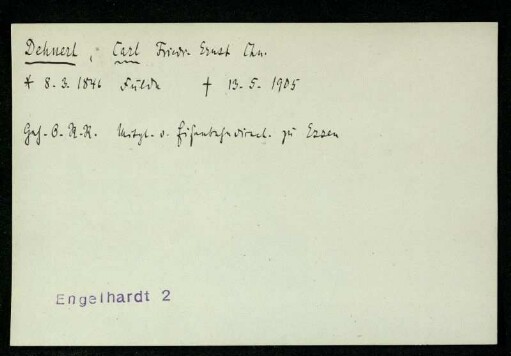 Dehnert, Carl Friedr. Ernst Chr.
* 8. 3. 1846 Fulda † 13. 5. 1905
Geh. O. R. R. Mitgl. d. Eisenbahndirect. zu Essen
Engelhardt 2